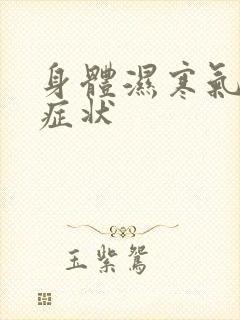 身體濕寒氣
症状
玉紫鴛